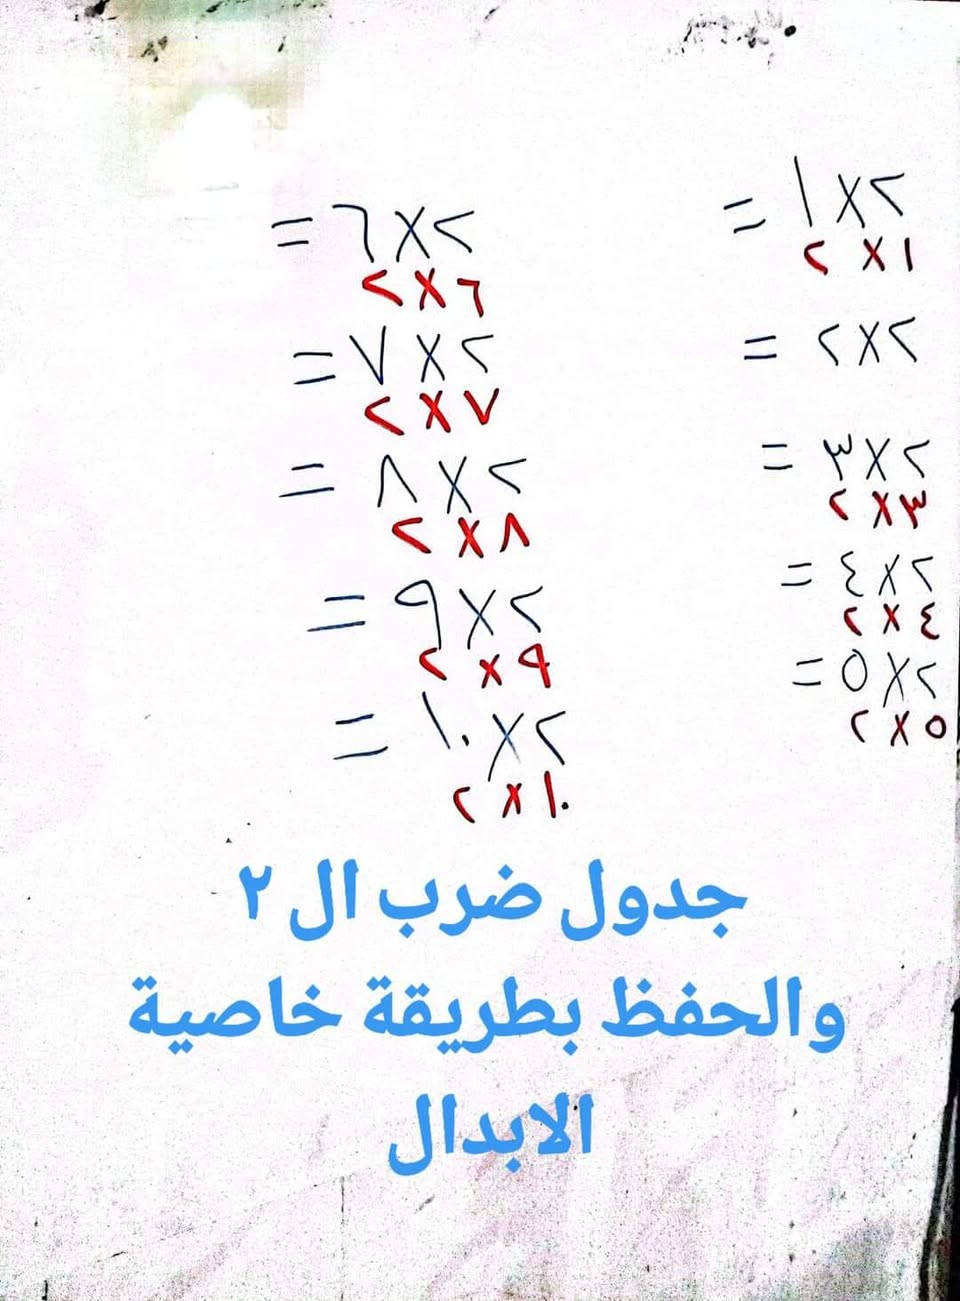 ٢×١=
١×٢
٢×٢=
٢×٣=
٣×٢
٢×٤=
٤×٢
٢×٥=
٥×٢
٢×٦=
٦×٢
٢×٧=
٧×٢
٢×٨=
٨×٢
٢×٩=
٩×٢
٢×١٠=
١٠×٢
جدول ضرب ال ٢
والحفظ بطريقة خاصية
الابدال